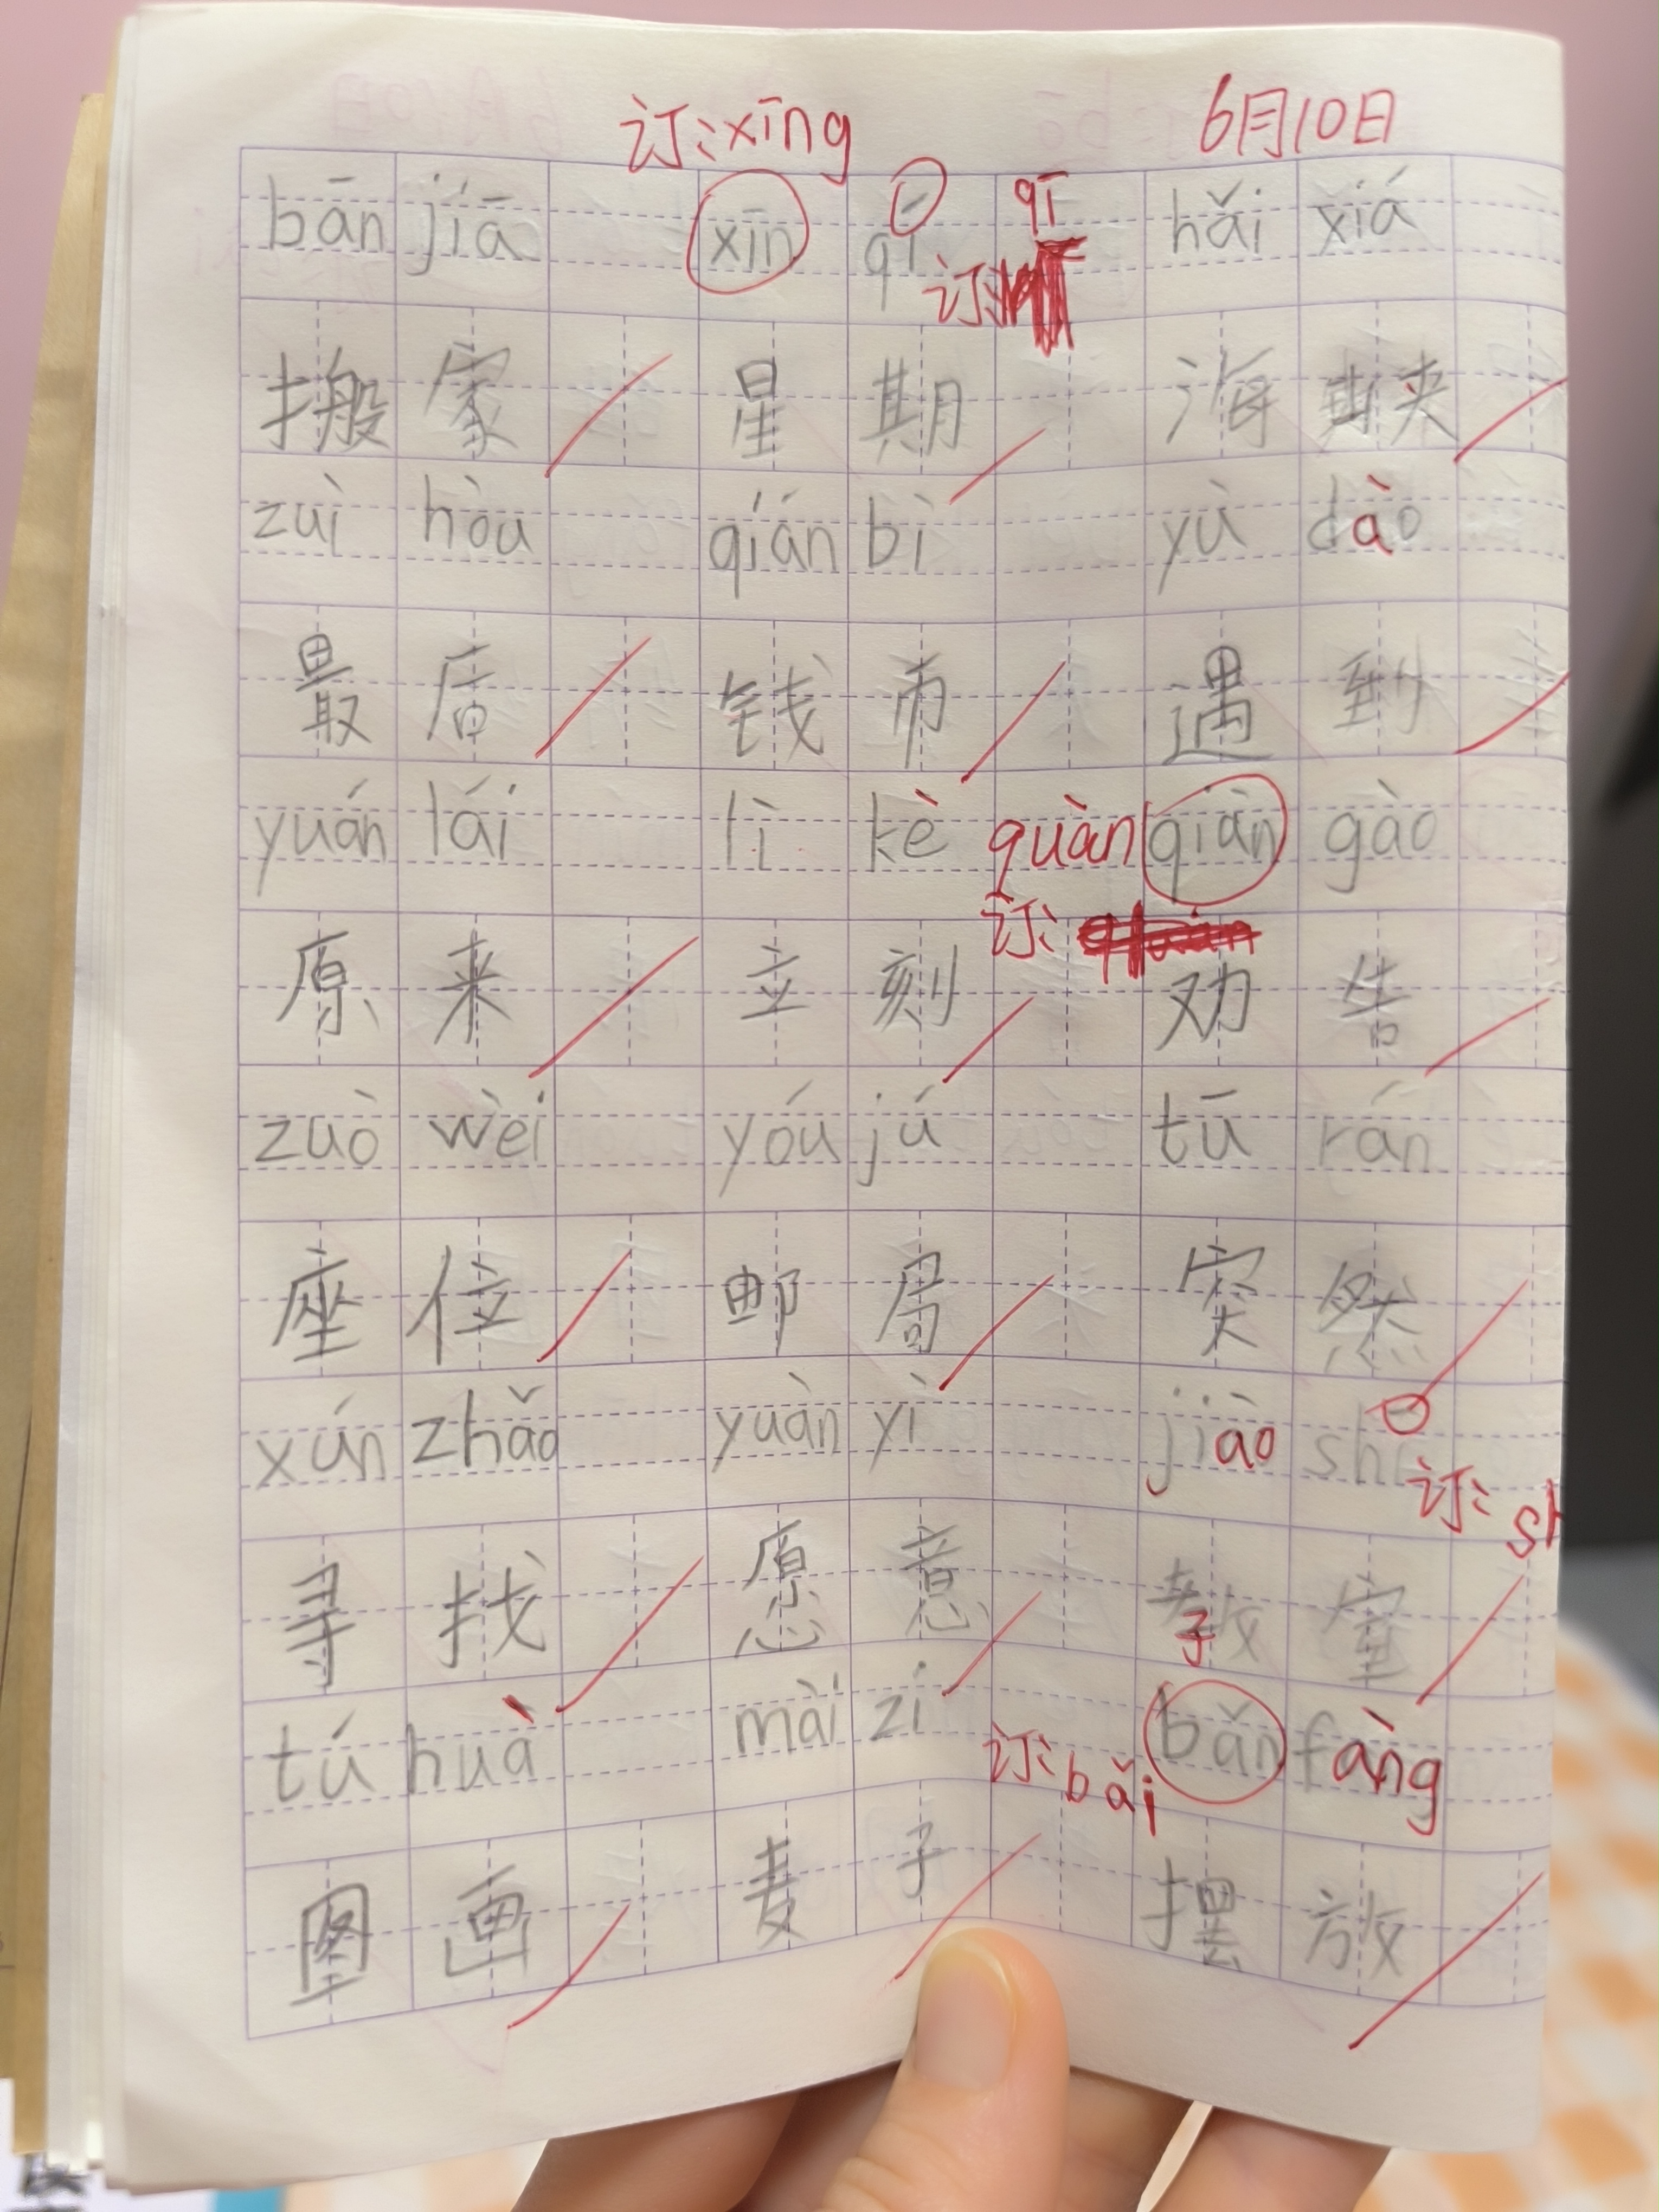 订:xīng 6月10日
bān jiā xīn qī qī hǎi xiá
订:
搬家 星期 海峡
zuì hòu qián bì yù dào
最后 钱币 遇到
yuán lái lì kè quàn qiàn gào
订:
原来 立刻 劝告
zuò wèi yóu jú tū rán
座位 邮局 突然
xún zhǎo yuàn yì jiào shī
订: sh
寻找 愿意 教室
tú huà mài zi bǎn fàng
订: bǎi
图画 麦子 摆放